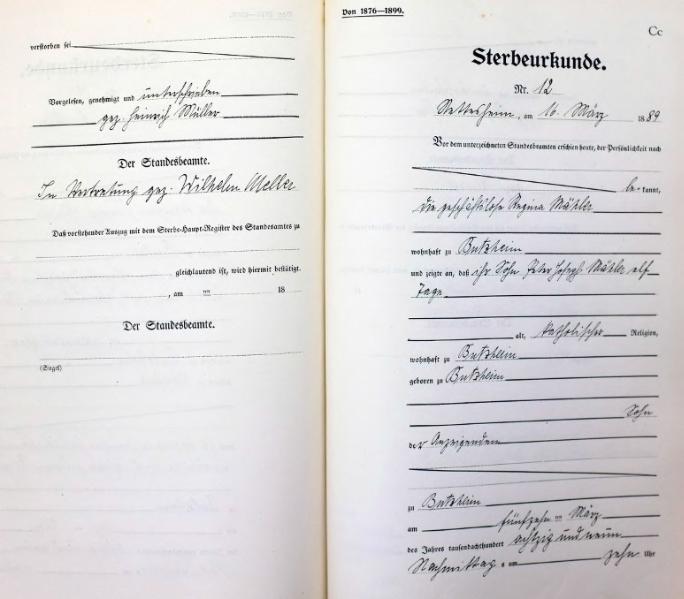 verstorben sei
Vorgelesen, genehmigt und unterschrieben
gez. Heinrich Müller
Der Standesbeamte.
In Vertretung gez. Wilhelm Meller
Daß vorstehender Auszug mit dem Sterbe-Haupt-Register des Standesamts zu
gleichlautend ist, wird hiermit bestätigt.
, am " 18
Der Standesbeamte.
(Siegel)
Von 1876—1899.
Cc
Sterbeurkunde.
Nr. 12
Nettesheim, am 16. März 1889
Vor dem unterzeichneten Standesbeamten erschien heute, der Persönlichkeit nach
be- kannt,
die geschäftslose Regina Mähler
wohnhaft zu Butzheim
und zeigte an, daß ihr Sohn Peter Joseph Mähler elf
Tage
alt, katholischer Religion,
wohnhaft zu Butzheim
geboren zu Butzheim
Sohn
der Anzeigenden
zu Butzheim
am fünfzehn ten März
des Jahres tausendachthundert achtzig und neun
Nachmittags um zehn Uhr